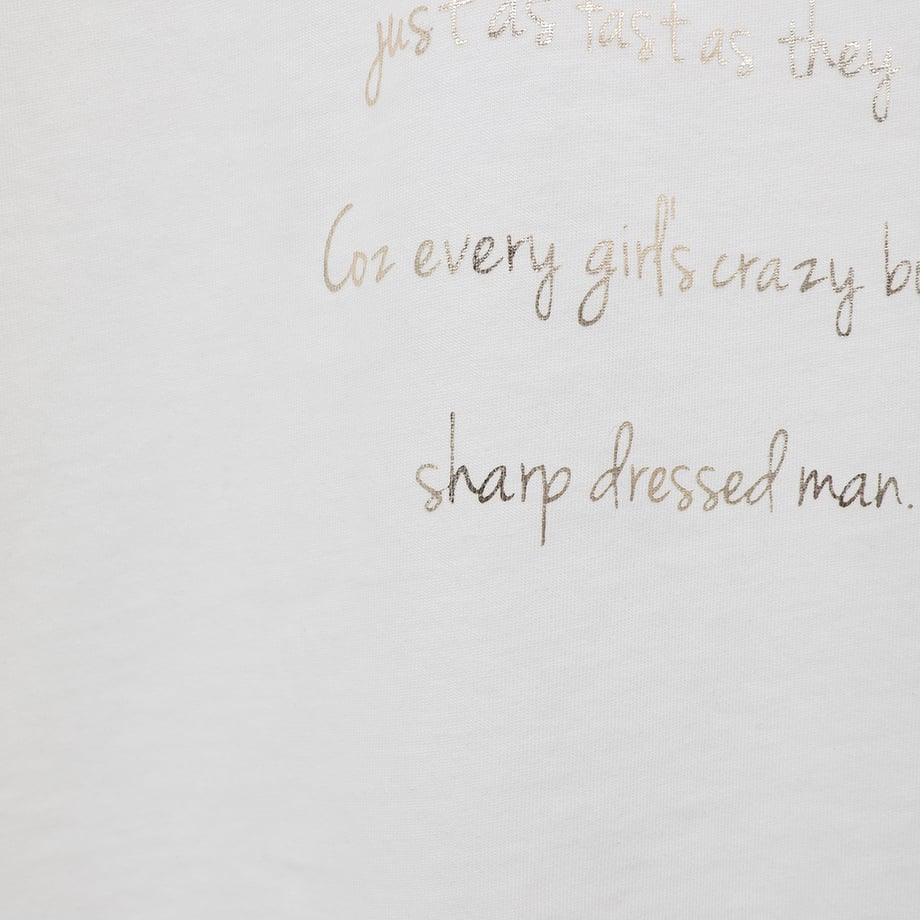 just as fast as they
Coz every girl's crazy
sharp dressed man.